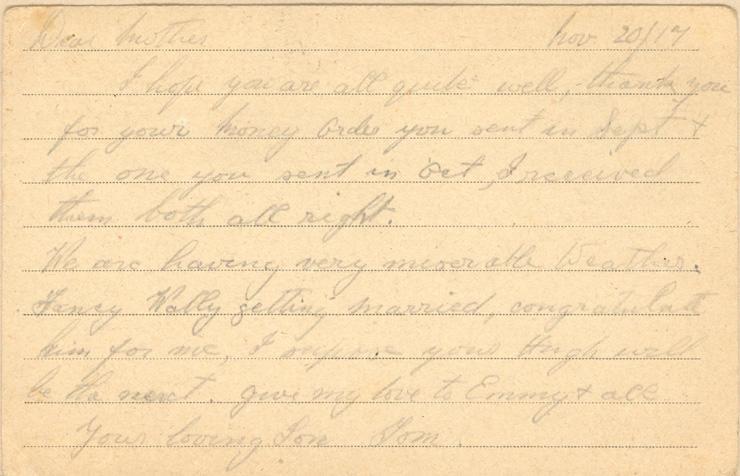 Dear Mother Nov 20/17
I hope you are all quite well, thank you
for your money order you sent in Sept &
the one you sent in Oct, I received
them both all right.
We are having very miserable Weather.
Fancy Wally getting married, congratulate
him for me, I suppose your Hugh will
be the next. give my love to Emmy & all
Your loving Son Tom.